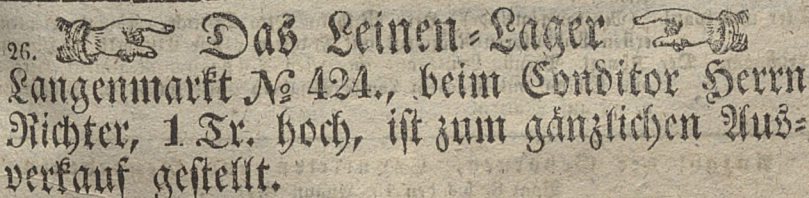 26. Das Leinen-Lager
Langenmarkt № 424., beim Conditor Herrn
Richter, 1 Tr. hoch, ist zum gänzlichen Aus-
verkauf gestellt.